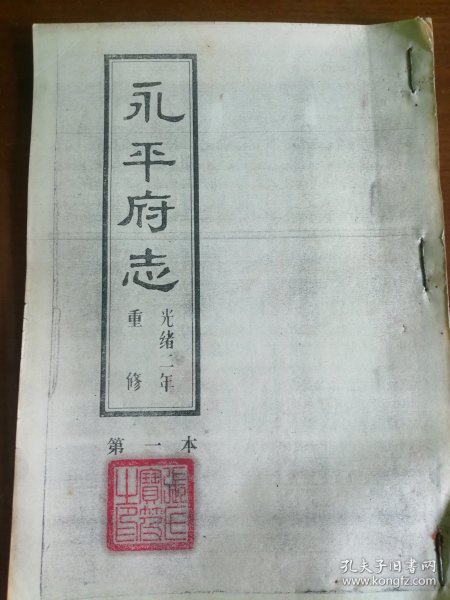 永平府志
光绪二年
重修
第一本
孔夫子旧书网
www.kongfz.com